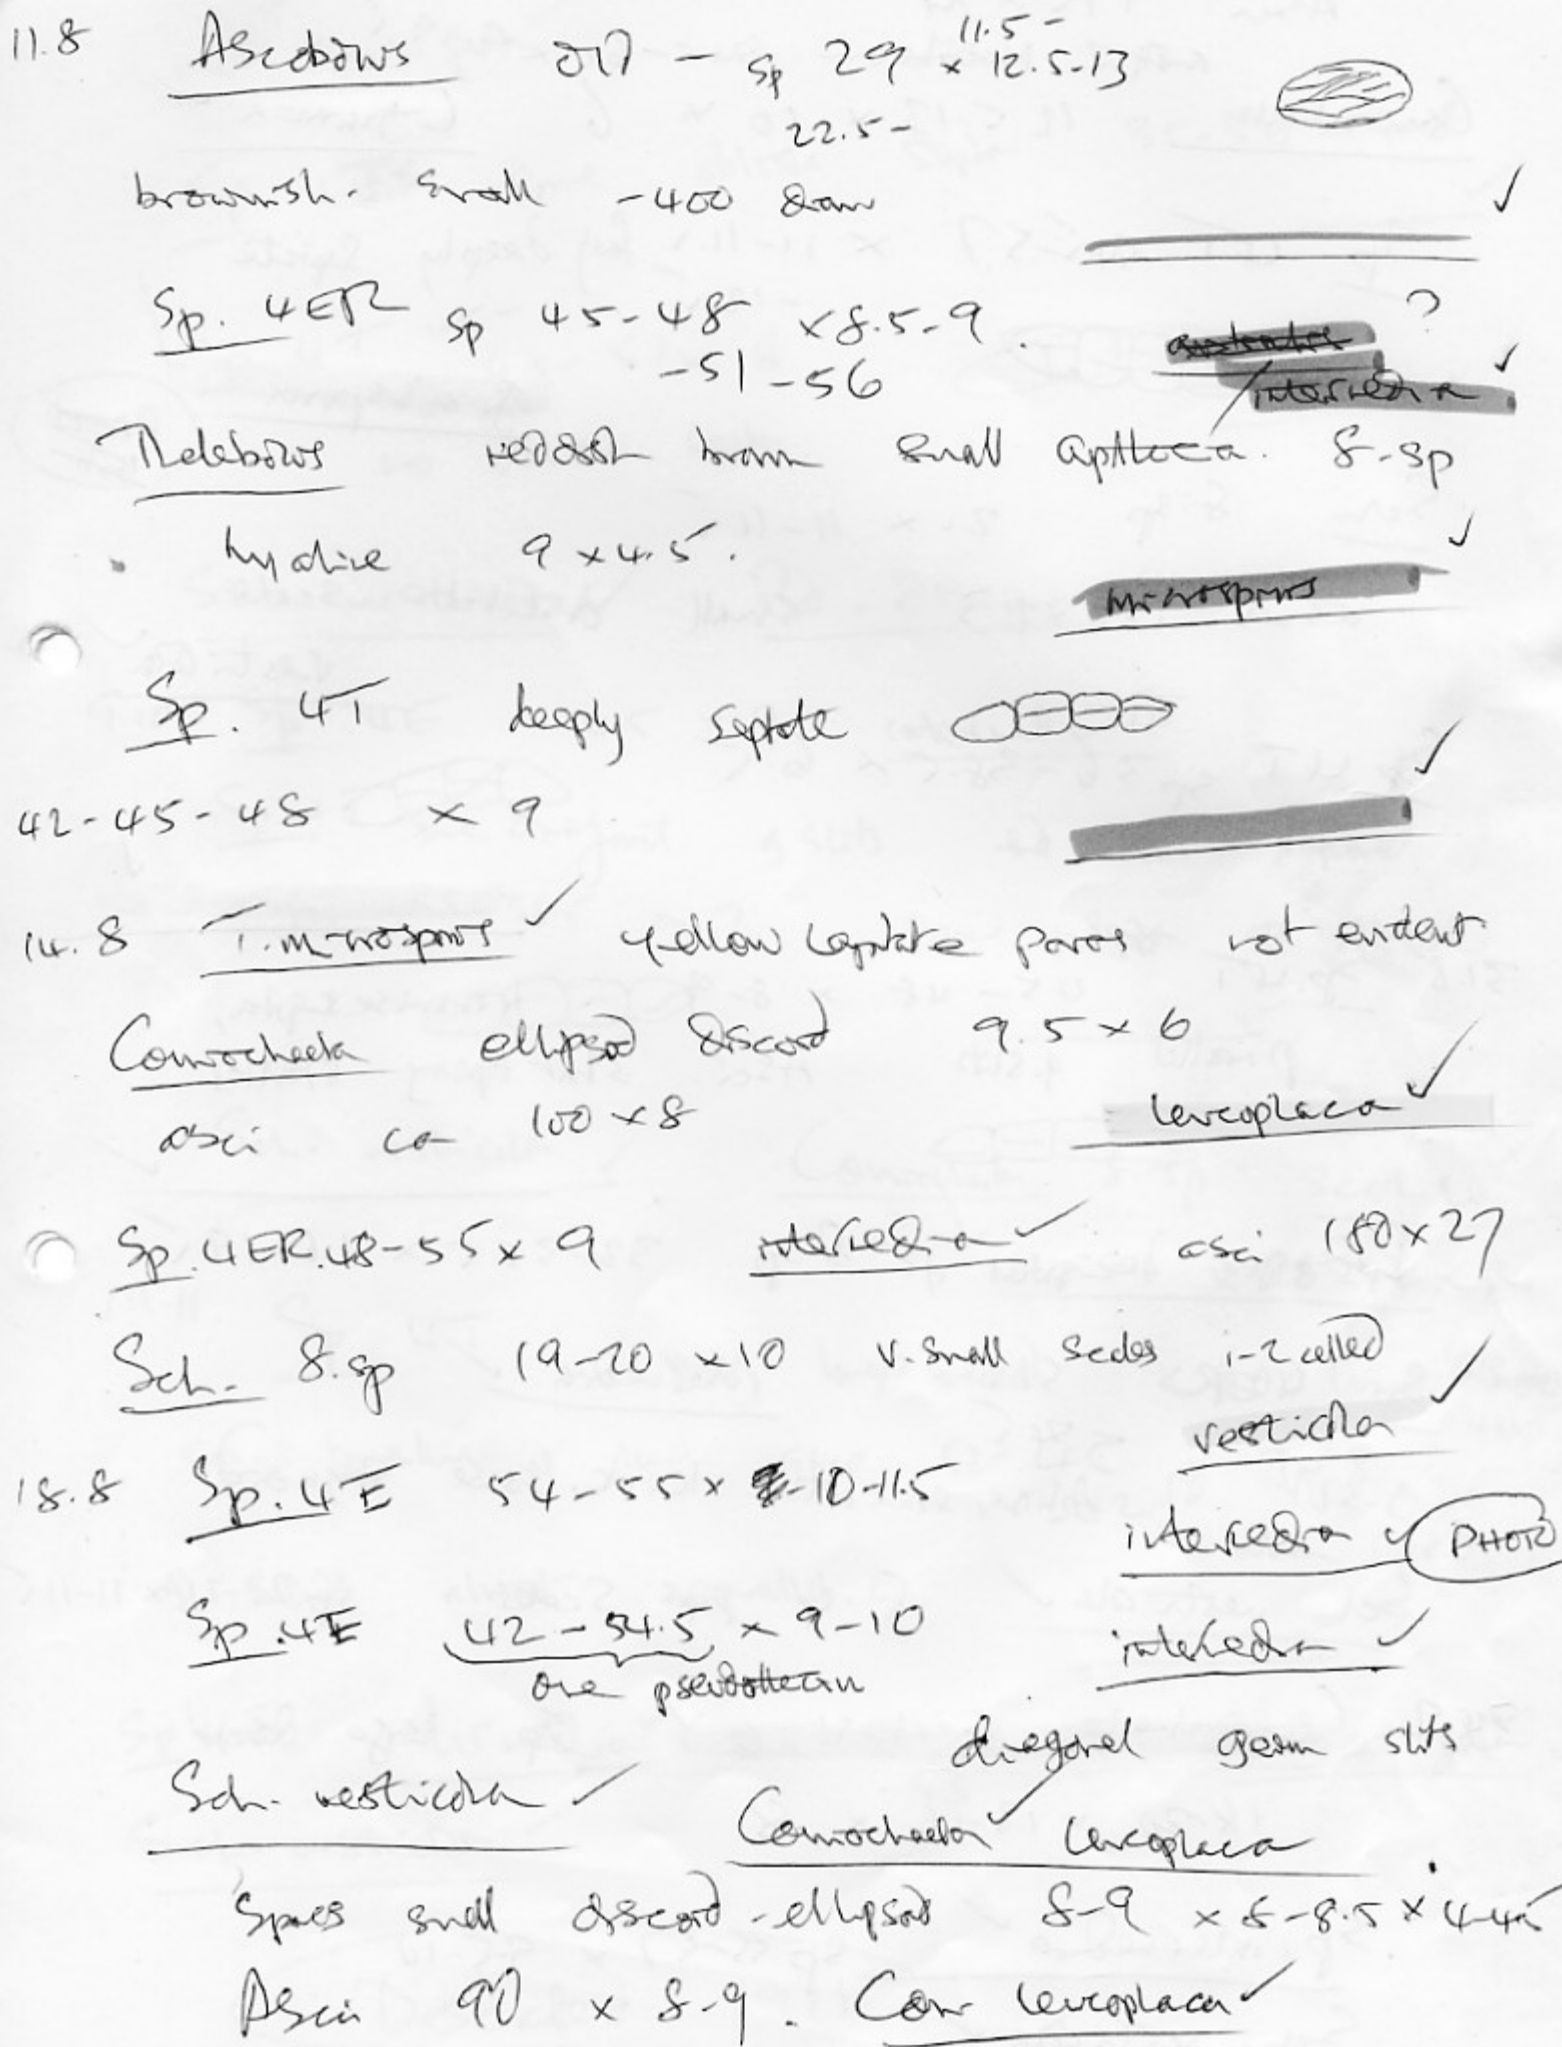 11.8 Ascobolus old - sp 29 × 11.5-12.5-13
22.5-
brownish. small -400 diam ✓
Sp. 4ER sp 45-48 × 8.5-9. ?
-51-56 intermedia ✓
Thelebolus reddish brown small apothecia. 8-sp
hyaline 9 × 4.5. ✓
microsporus
Sp. 4T deeply septate ✓
42-45-48 × 9
14.8 T. microsporus ✓ yellow capitate paras not evident
Coniochaeta ellipsoid discoid 9.5 × 6
asci ca 100 × 8 leucoplaca ✓
Sp. 4ER. 48-55 × 9 intermedia ✓ asci 180 × 27
Sch. 8.sp 19-20 × 10 v. small scales 1-2 celled
vesticola ✓
18.8 Sp. 4E 54-55 × -10-11.5
intermedia ✓ PHOTO
Sp. 4E 42-54.5 × 9-10 intermedia ✓
one pseudothecium
diagonal germ slits
Sch. vesticola ✓ Coniochaeta ✓ leucoplaca
Spores small discoid-ellipsoid 8-9 × 8-8.5 × 4-4.5
Asci 90 × 8-9. Con. leucoplaca ✓